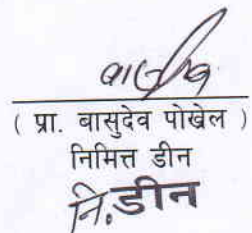 ( प्रा. बासुदेव पोखेल )
निमित्त डीन
नि.डीन